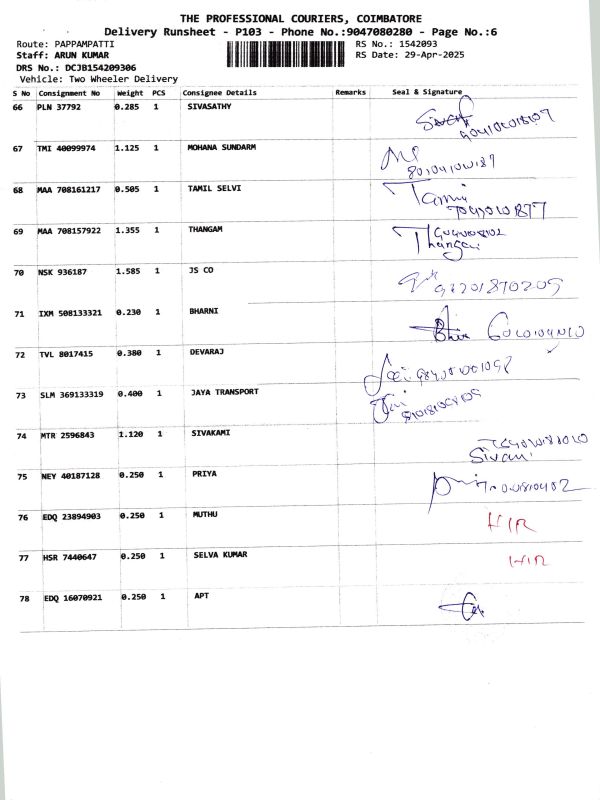 THE PROFESSIONAL COURIERS, COIMBATORE
Delivery Runsheet - P103 - Phone No.:9047080280 - Page No.:6
Route: PAPPAMPATTI RS No.: 1542093
Staff: ARUN KUMAR RS Date: 29-Apr-2025
DRS No.: DCJB154209306
Vehicle: Two Wheeler Delivery
S No Consignment No Weight PCS Consignee Details Remarks Seal & Signature
66 PLN 37792 0.285 1 SIVASATHY
67 TMI 40099974 1.125 1 MOHANA SUNDARM
68 MAA 708161217 0.505 1 TAMIL SELVI
69 MAA 708157922 1.355 1 THANGAM
70 NSK 936187 1.585 1 JS CO 98201870205
71 IXM 508133321 0.230 1 BHARNI
72 TVL 8017415 0.380 1 DEVARAJ
73 SLM 369133319 0.400 1 JAYA TRANSPORT
74 MTR 2596843 1.120 1 SIVAKAMI
Sivami
75 NEY 40187128 0.250 1 PRIYA
76 EDQ 23894903 0.250 1 MUTHU HIR
77 HSR 7440647 0.250 1 SELVA KUMAR HIR
78 EDQ 16070921 0.250 1 APT